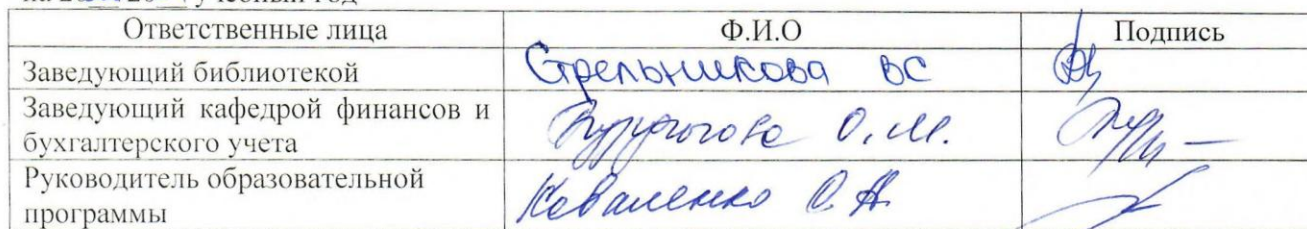 учебный год
Ответственные лица Ф.И.О Подпись
Заведующий библиотекой Стрельникова ВС
Заведующий кафедрой финансов и
бухгалтерского учета О.М.
Руководитель образовательной
программы Коваленко С.Н.